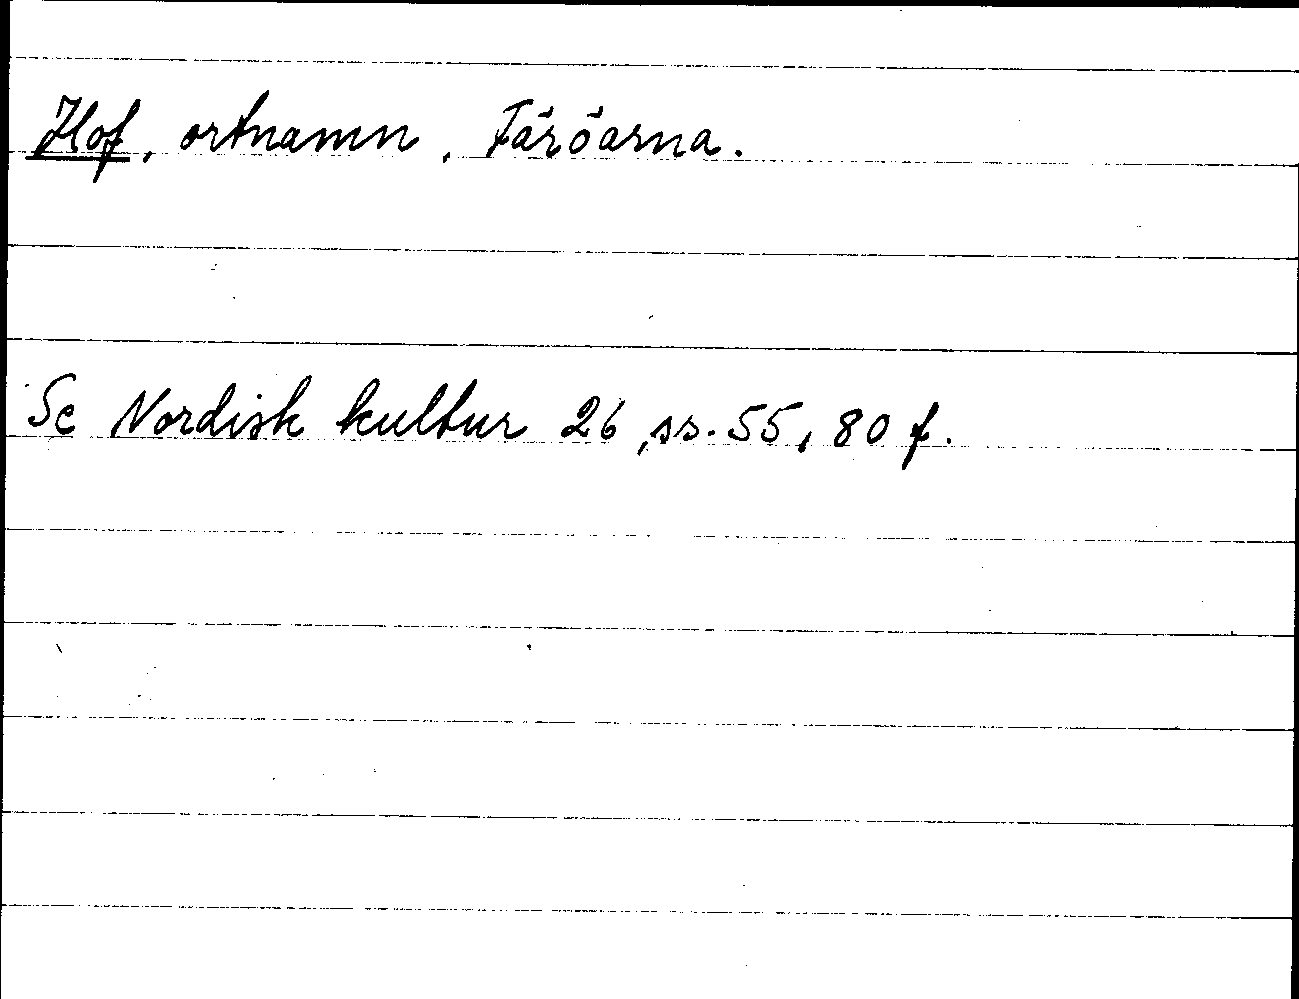 Hof, ortnamn, Färöarna.
Se Nordisk kultur 26, ss. 55, 80 f.